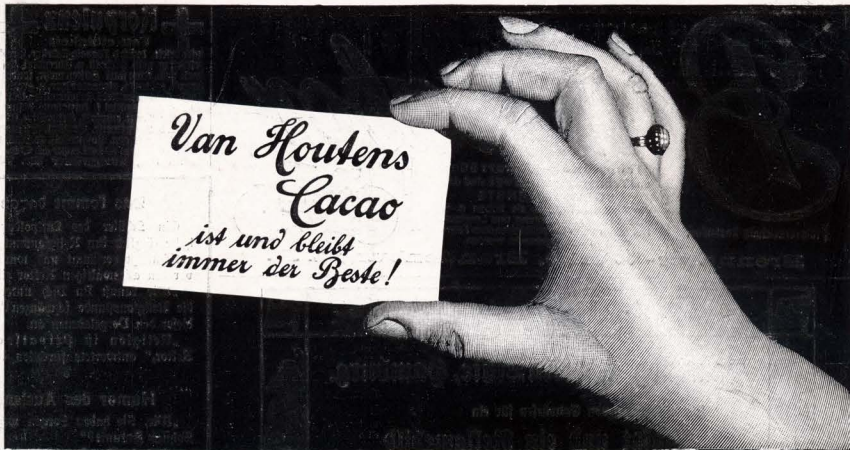 Van Houtens
Cacao
ist und bleibt
immer der Beste!